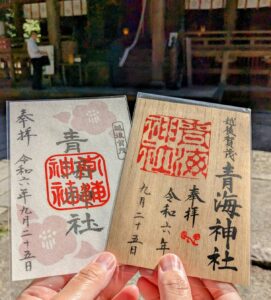 奉拝
越後賀茂
青海神社
令和六年
九月二十五日
越後賀茂
青海神社
青海
神社
奉拝
令和六年
九月二十五日